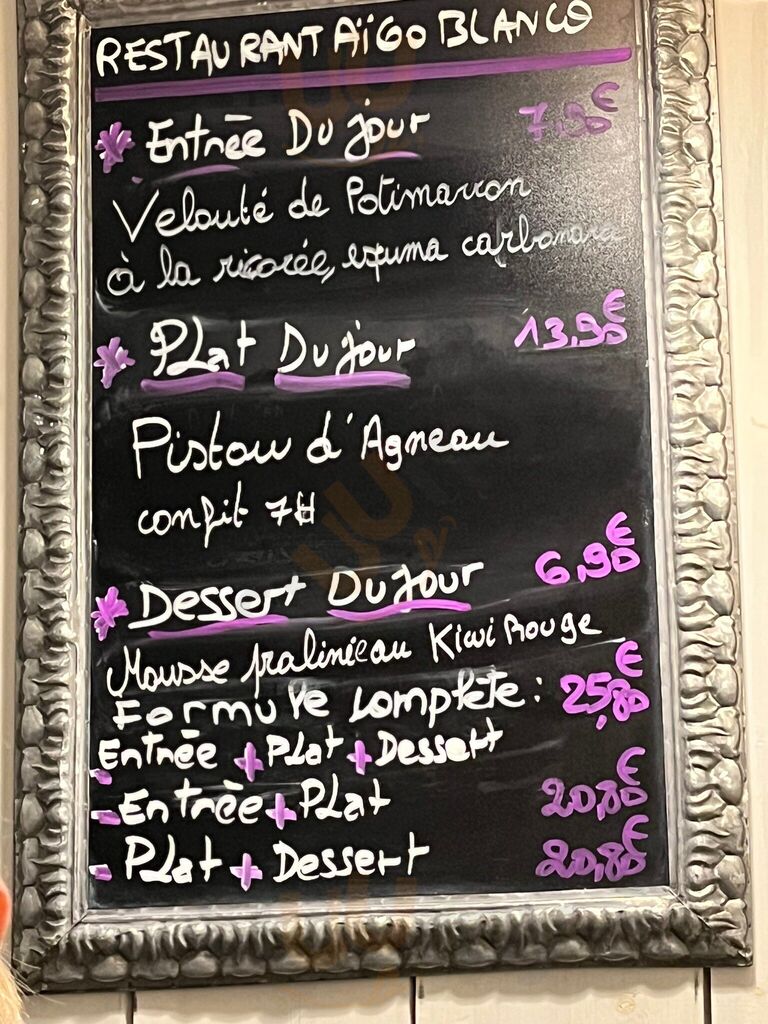 RESTAURANT AÏGO BLANCO
* Entrée Du jour 7,90€
Velouté de Potimarron
à la ricorée, espuma carbonara
* PLat Du jour 13,90€
Pistou d'Agneau
confit 7H
* Dessert Du Jour 6,90€
Mousse pralinée au Kiwi Rouge
Formule complète : 25,80€
Entrée + PLat + Dessert
- Entrée + PLat 20,80€
- PLat + Dessert 20,80€